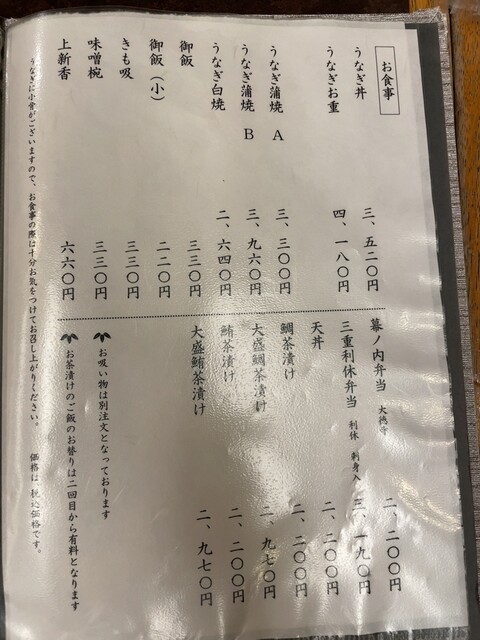 お食事
うなぎ丼 三、五二〇円
うなぎお重 四、一八〇円
うなぎ蒲焼 A 三、三〇〇円
うなぎ蒲焼 B 三、九六〇円
うなぎ白焼 二、六四〇円
御飯 三三〇円
御飯(小) 二二〇円
きも吸 三三〇円
味噌椀 三三〇円
上新香 六六〇円
幕ノ内弁当 大徳寺 二、二〇〇円
三重利休弁当 利休 刺身入 三、一九〇円
天丼 二、二〇〇円
鯛茶漬け 二、二〇〇円
大盛鯛茶漬け 二、九七〇円
鮪茶漬け 二、二〇〇円
大盛鮪茶漬け 二、九七〇円
お吸い物は別注文となっております
お茶漬けのご飯のお替りは二回目から有料となります
うなぎに小骨がございますので、お食事の際は十分お気をつけてお召し上がりください。 価格は税込価格です。